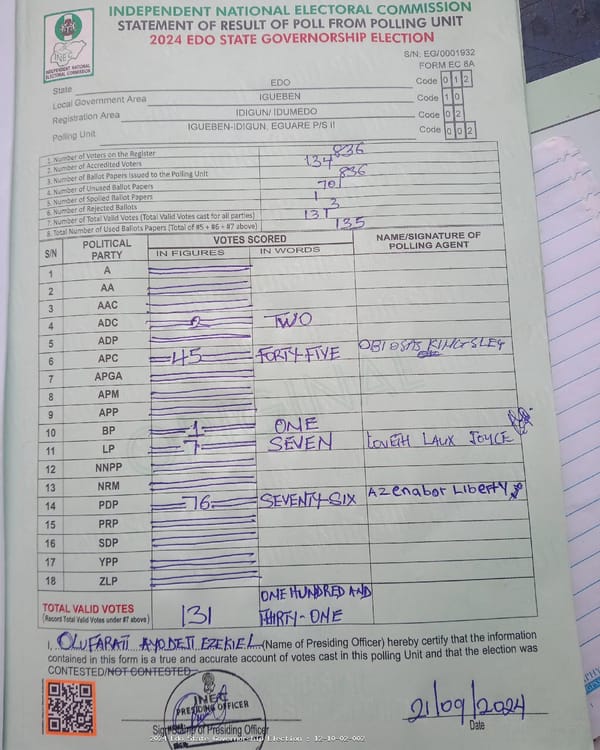 INDEPENDENT NATIONAL ELECTORAL COMMISSION
STATEMENT OF RESULT OF POLL FROM POLLING UNIT
2024 EDO STATE GOVERNORSHIP ELECTION
INEC
INDEPENDENT NATIONAL ELECTORAL COMMISSION
S/N: EG/0001932
FORM EC 8A
State EDO Code 0 1 2
Local Government Area IGUEBEN Code 1 0
Registration Area IDIGUN/ IDUMEDO Code 0 2
Polling Unit IGUEBEN-IDIGUN, EGUARE P/S II Code 0 0 2
1. Number of Voters on the Register 836
2. Number of Accredited Voters 134
3. Number of Ballot Papers Issued to the Polling Unit 836
4. Number of Unused Ballot Papers 701
5. Number of Spoiled Ballot Papers 1
6. Number of Rejected Ballots 3
7. Number of Total Valid Votes (Total Valid Votes cast for all parties) 131
8. Total Number of Used Ballots Papers (Total of #5 + #6 + #7 above) 135
S/N POLITICAL PARTY VOTES SCORED NAME/SIGNATURE OF POLLING AGENT
IN FIGURES IN WORDS
1 A
2 AA
3 AAC
4 ADC 2 TWO
5 ADP
6 APC 45 FORTY FIVE OBIOSAS KINGSLEY
7 APGA
8 APM
9 APP
10 BP 1 ONE
11 LP 7 SEVEN LAUX JOYCE
12 NNPP
13 NRM
14 PDP 76 SEVENTY SIX Azenabor Liberty
15 PRP
16 SDP
17 YPP
18 ZLP
TOTAL VALID VOTES 131 ONE HUNDRED AND
(Record Total Valid Votes under #7 above) THIRTY-ONE
I, OLUFARATI AYODEJI EZEKIEL (Name of Presiding Officer) hereby certify that the information
contained in this form is a true and accurate account of votes cast in this polling Unit and that the election was
CONTESTED/NOT CONTESTED
INEC
PRESIDING OFFICER
21/09/2024
Signature of Presiding Officer Date
2024 Edo State Governorship Election : 12-10-02-002